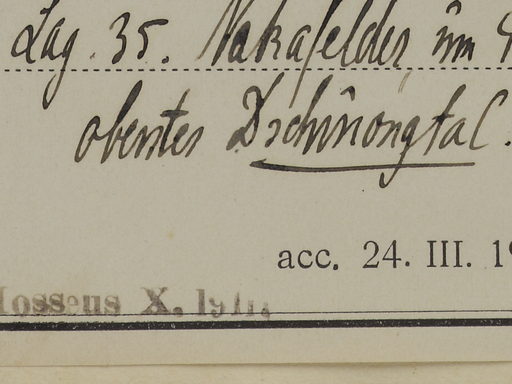 Lag. 35. Nakafelder im
oberstes Dschinongtal.
acc. 24. III. 19
X. 191